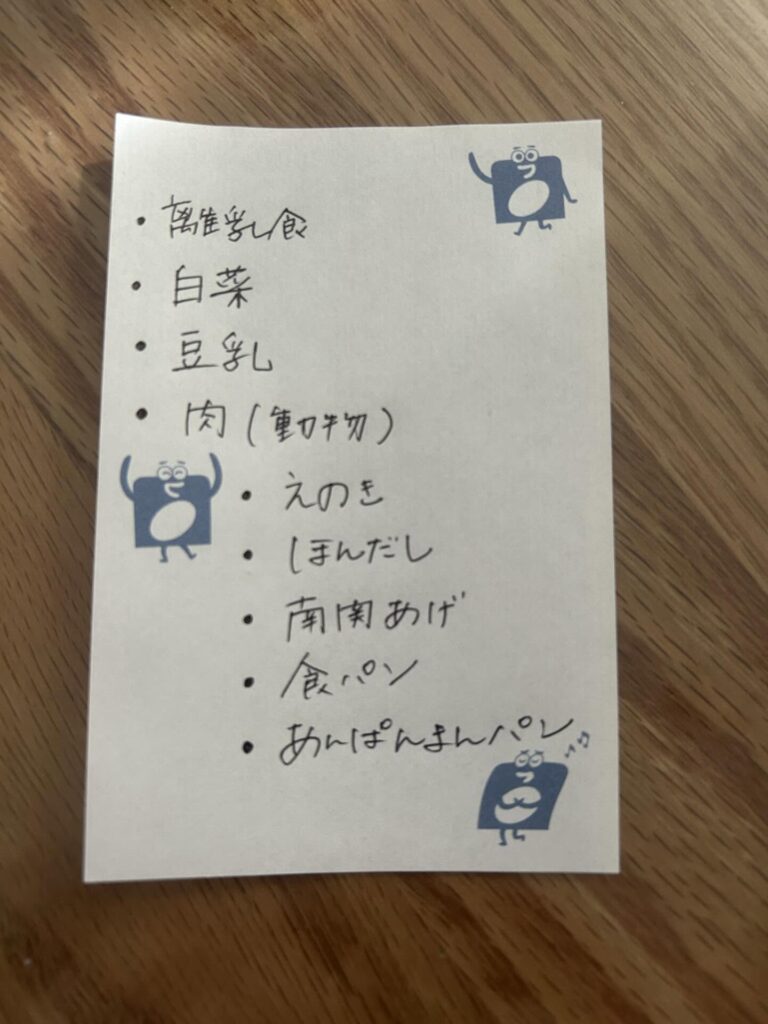 ・離乳食
・白菜
・豆乳
・肉(動物)
・えのき
・ほんだし
・南関あげ
・食パン
・あんぱんまんパン